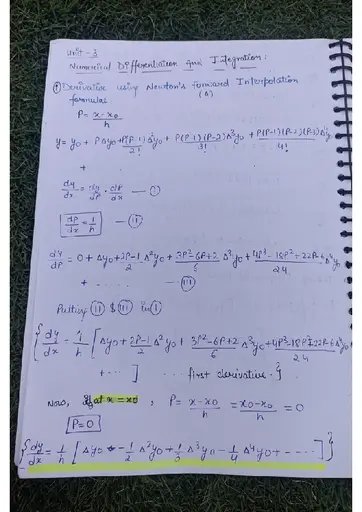 Unit - 3
Numerical Differentiation and Integration:
① Derivative using Newton's forward Interpolation
(Δ)
formulas
P = x-x0/h
y = y0 + PΔy0 + P(P-1)/2! Δ²y0 + P(P-1)(P-2)/3! Δ³y0 + P(P-1)(P-2)(P-3)/4! Δ⁴y0
+ .
dy/dx = dy/dP . dP/dx — ①
dP/dx = 1/h — ⑪
dy/dP = 0 + Δy0 + 2P-1/2 Δ²y0 + 3P²-6P+2/6 Δ³y0 + 4P³-18P²+22P-6/24 Δ⁴y0
+ . . . . . — ⑪⑪
Putting ⑪ $ ⑪⑪ in ①
{ dy/dx = 1/h [ Δy0 + 2P-1/2 Δ²y0 + 3P²-6P+2/6 Δ³y0 + 4P³-18P²+22P-6/24 Δ⁴y0
+ . . . ] . . . first derivative. }
Now, If at x = x0 , P = x-x0/h = x0-x0/h = 0
P=0
{ dy/dx = 1/h [ Δy0 - 1/2 Δ²y0 + 1/3 Δ³y0 - 1/4 Δ⁴y0 + - - - - ] }